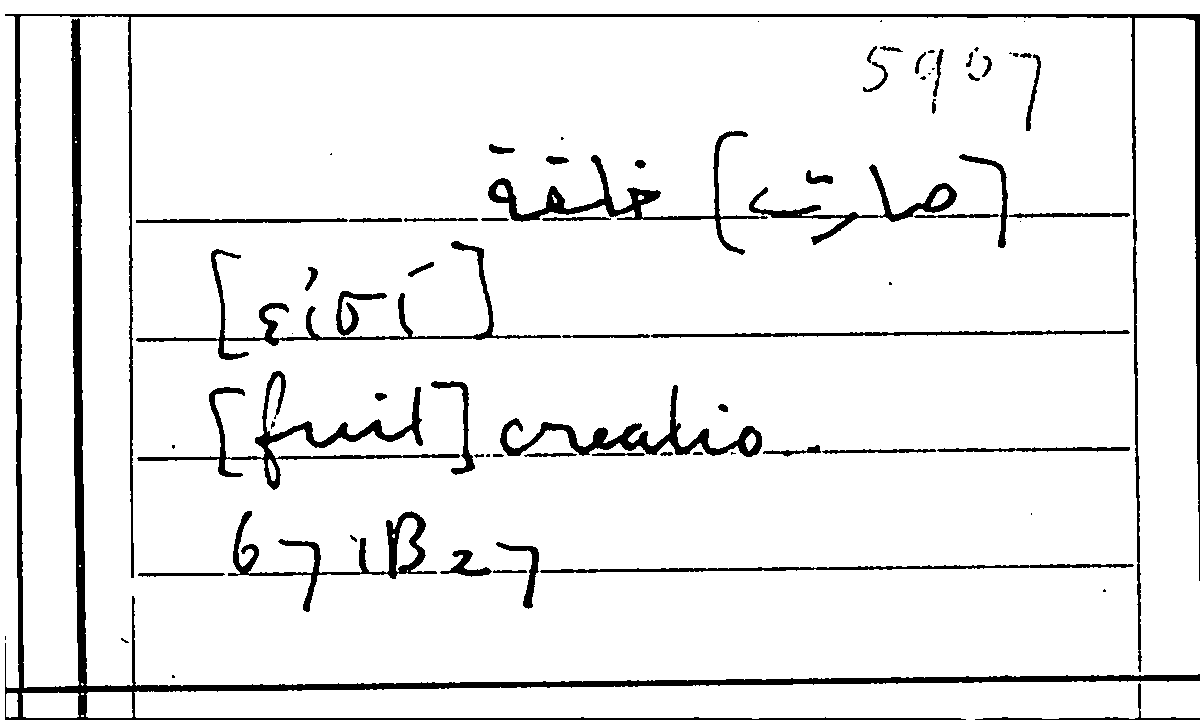 5907
[صارت] خلقة
[εἰσί]
[fuit] creatio.
671B27